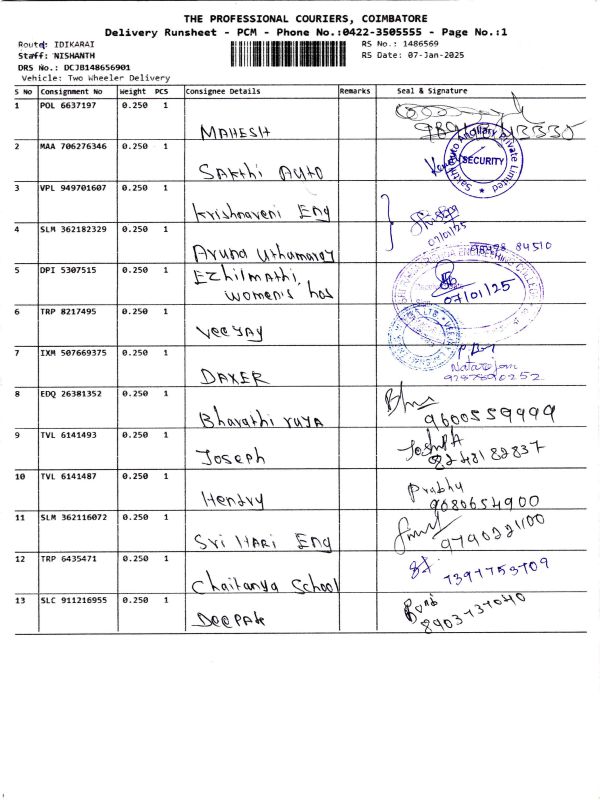 THE PROFESSIONAL COURIERS, COIMBATORE
Delivery Runsheet - PCM - Phone No.:0422-3505555 - Page No.:1
Route: IDIKARAI
RS No.: 1486569
Staff: NISHANTH
RS Date: 07-Jan-2025
DRS No.: DCJB148656901
Vehicle: Two Wheeler Delivery
S No Consignment No Weight PCS Consignee Details Remarks Seal & Signature
1 POL 6637197 0.250 1
MAHESH
2 MAA 706276346 0.250 1
Sakthi Auto
SECURITY
Private Limited
3 VPL 949701607 0.250 1
Krishnaveni Eng
07/01/25
4 SLM 362182329 0.250 1
84510
Aruna
5 DPI 5307515 0.250 1
Ezhilmathi
women's hos
07/01/25
6 TRP 8217495 0.250 1
Veejay
7 IXM 507669375 0.250 1
Natarajan
9787890252
DAXER
8 EDQ 26381352 0.250 1
Bharathi
9600559999
9 TVL 6141493 0.250 1
Joseph
10 TVL 6141487 0.250 1
Prabhu
Hendry
9080654900
11 SLM 362116072 0.250 1
Sri HARI Eng
12 TRP 6435471 0.250 1
Chaitanya School
13 SLC 911216955 0.250 1
Deepak